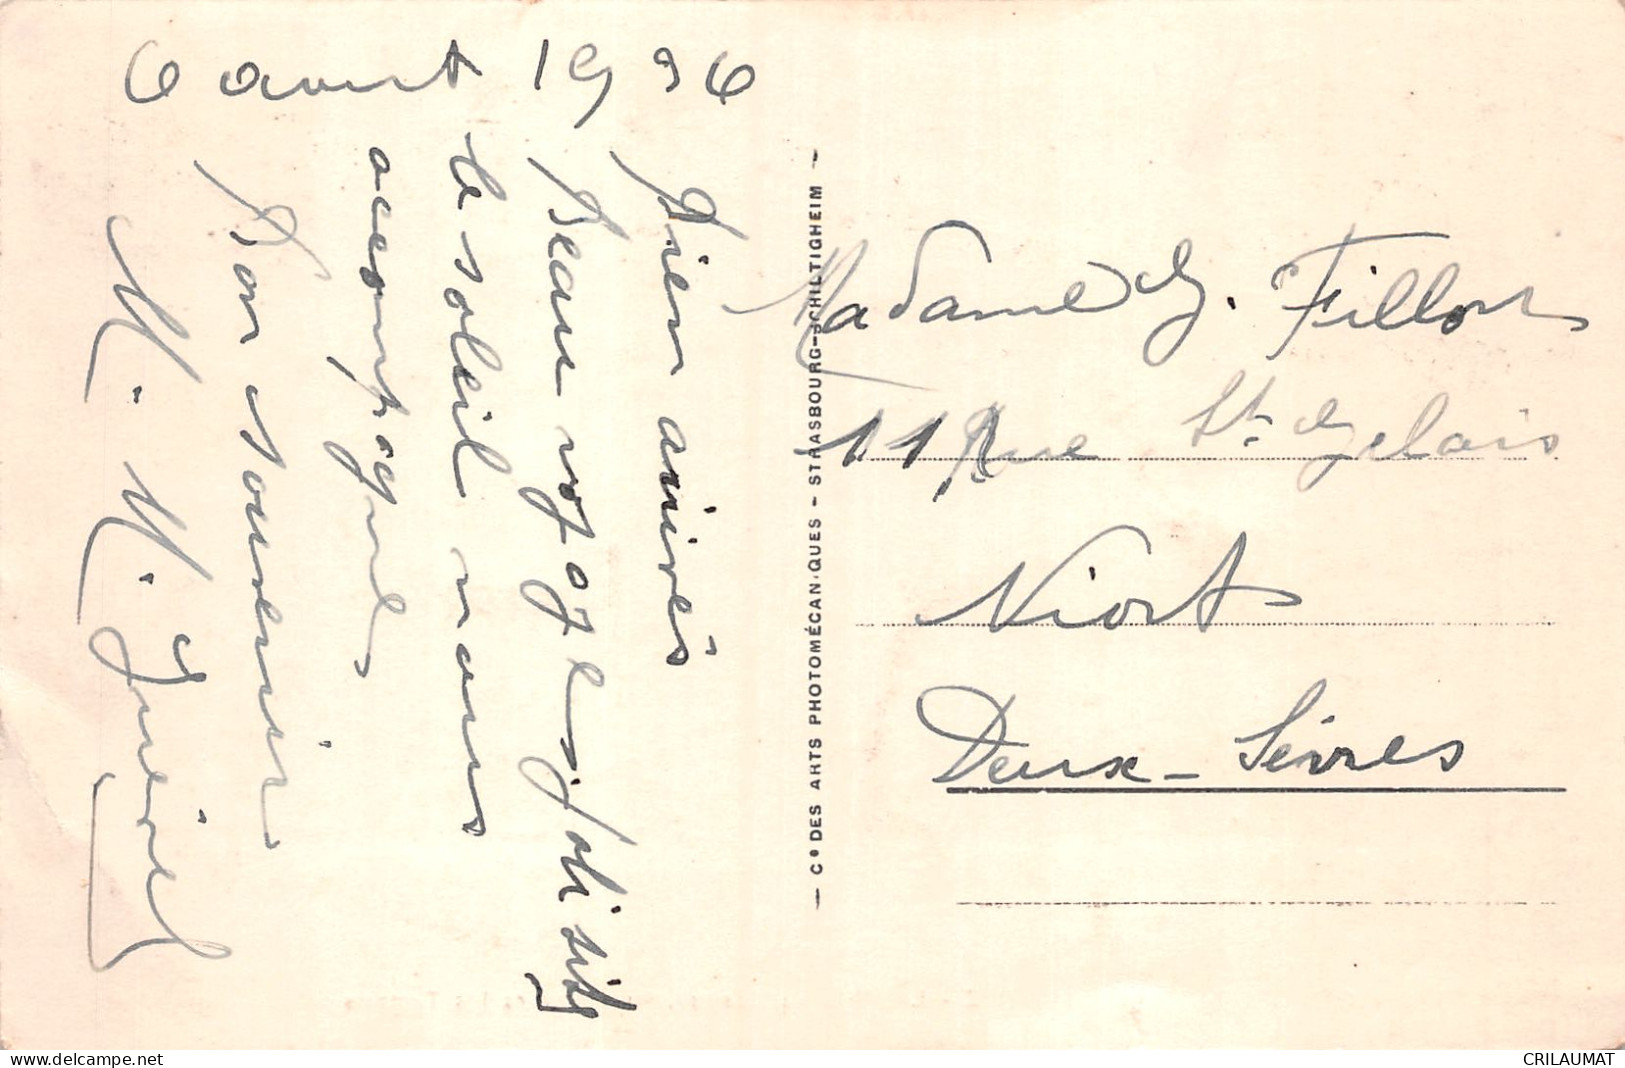 6 aout 1936
Bien arrivés
Beau voyage, joli site
le soleil nous
accompagne
Bon souvenir
M. M.
— Cⁱᵉ DES ARTS PHOTOMÉCANIQUES - STRASBOURG-SCHILTIGHEIM —
Madame G. Fillon
11 Rue St. Gelais
Niort
Deux-Sèvres
CRILAUMAT